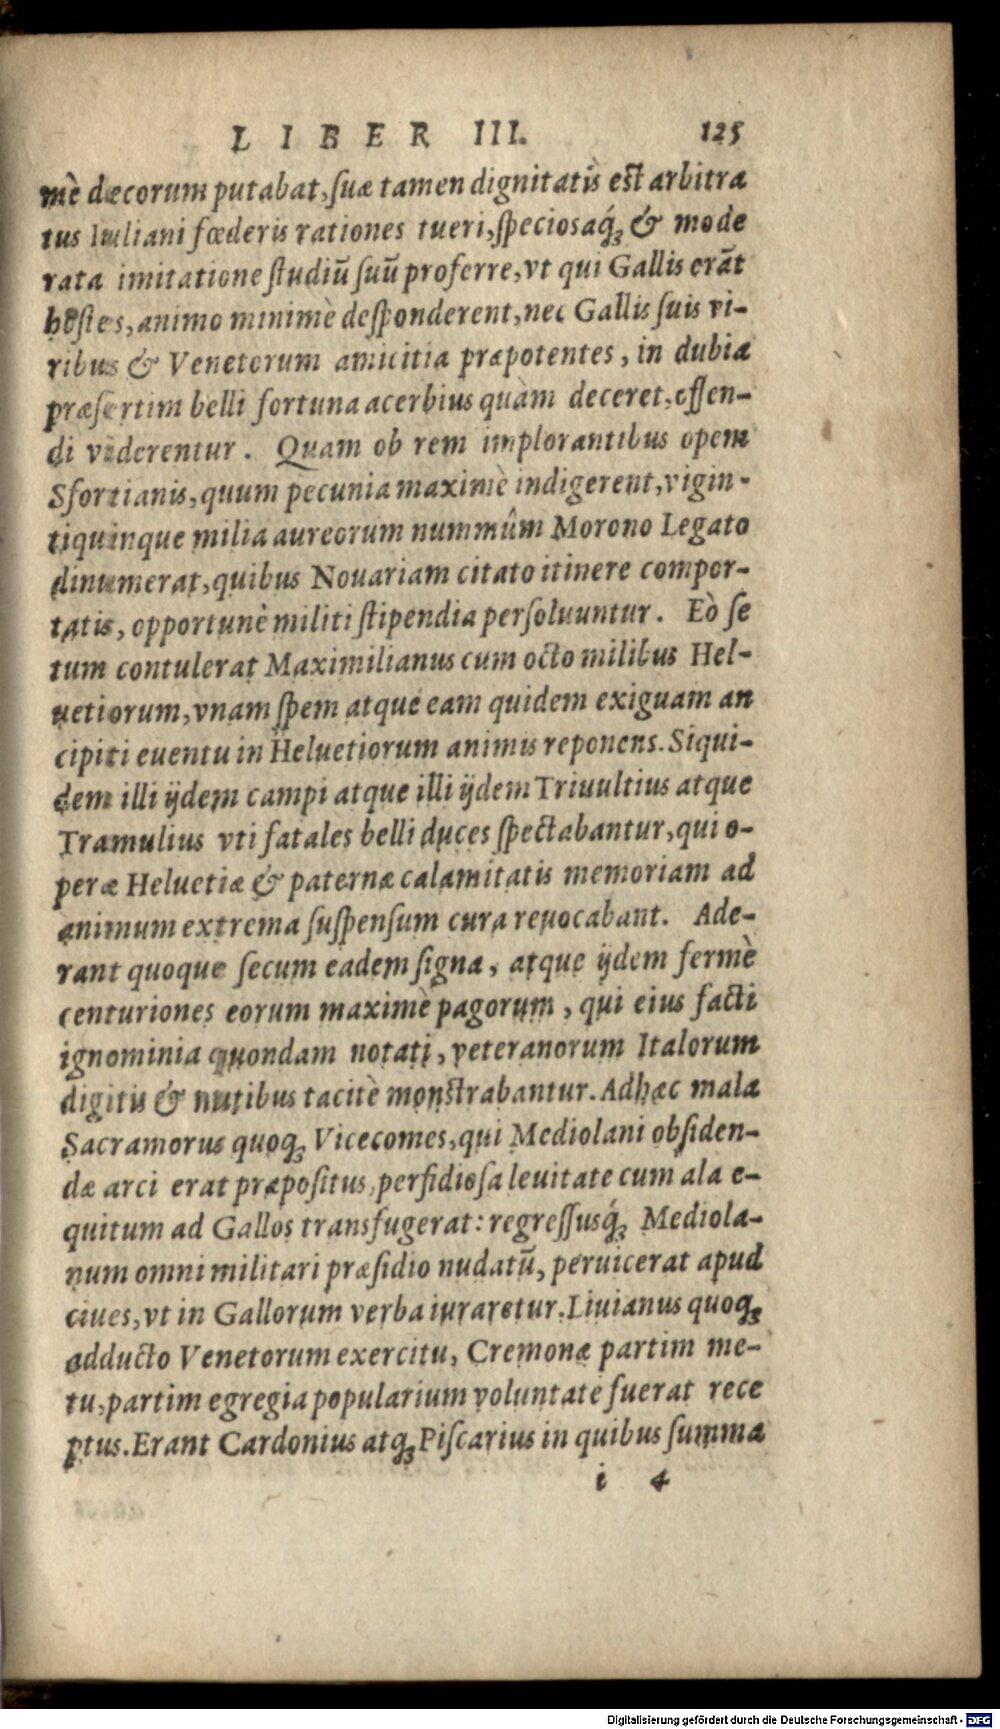 LIBER III. 125
mè dæcorum putabat, suæ tamen dignitatis est arbitra
tus Iuliani fœderis rationes tueri, speciosaq́; & mode
rata imitatione studiũ suũ proferre, vt qui Gallis erãt
hostes, animo minimè desponderent, nec Gallis suis vi-
ribus & Venetorum amicitia præpotentes, in dubia
præsertim belli fortuna acerbius quàm deceret, offen-
di viderentur. Quam ob rem implorantibus opem
Sfortianis, quum pecunia maximè indigerent, vigin-
tiquinque milia aureorum nummûm Morono Legato
dinumerat, quibus Nouariam citato itinere compor-
tatis, opportunè militi stipendia persoluuntur. Eò se
tum contulerat Maximilianus cum octo milibus Hel-
uetiorum, vnam spem atque eam quidem exiguam an
cipiti euentu in Heluetiorum animis reponens. Siqui-
dem illi ijdem campi atque illi ijdem Triuultius atque
Tramulius vti fatales belli duces spectabantur, qui o-
peræ Heluetiæ & paternæ calamitatis memoriam ad
animum extrema suspensum cura reuocabant. Ade-
rant quoque secum eadem signa, atque ijdem fermè
centuriones eorum maximè pagorum, qui eius facti
ignominia quondam notati, veteranorum Italorum
digitis & nutibus tacitè monstrabantur. Adhæc mala
Sacramorus quoq; Vicecomes, qui Mediolani obsiden-
dæ arci erat præpositus, perfidiosa leuitate cum ala e-
quitum ad Gallos transfugerat: regressusq́; Mediola-
num omni militari præsidio nudatũ, peruicerat apud
ciues, vt in Gallorum verba iuraretur. Liuianus quoq;
adducto Venetorum exercitu, Cremonæ partim me-
tu, partim egregia popularium voluntate fuerat rece
ptus. Erant Cardonius atq; Piscarius in quibus summa
i 4
Digitalisierung gefördert durch die Deutsche Forschungsgemeinschaft - DFG